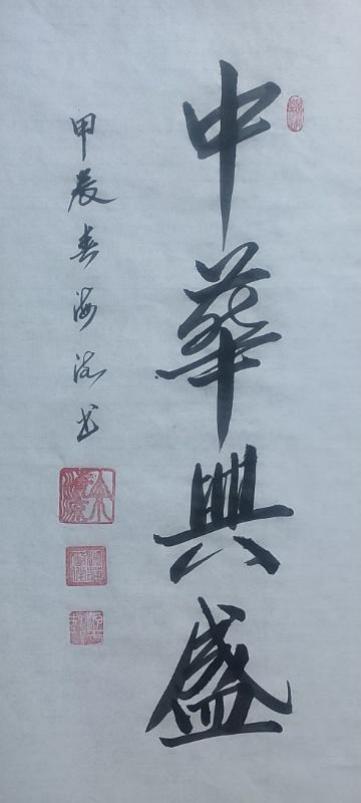 中華興盛
甲辰春海书